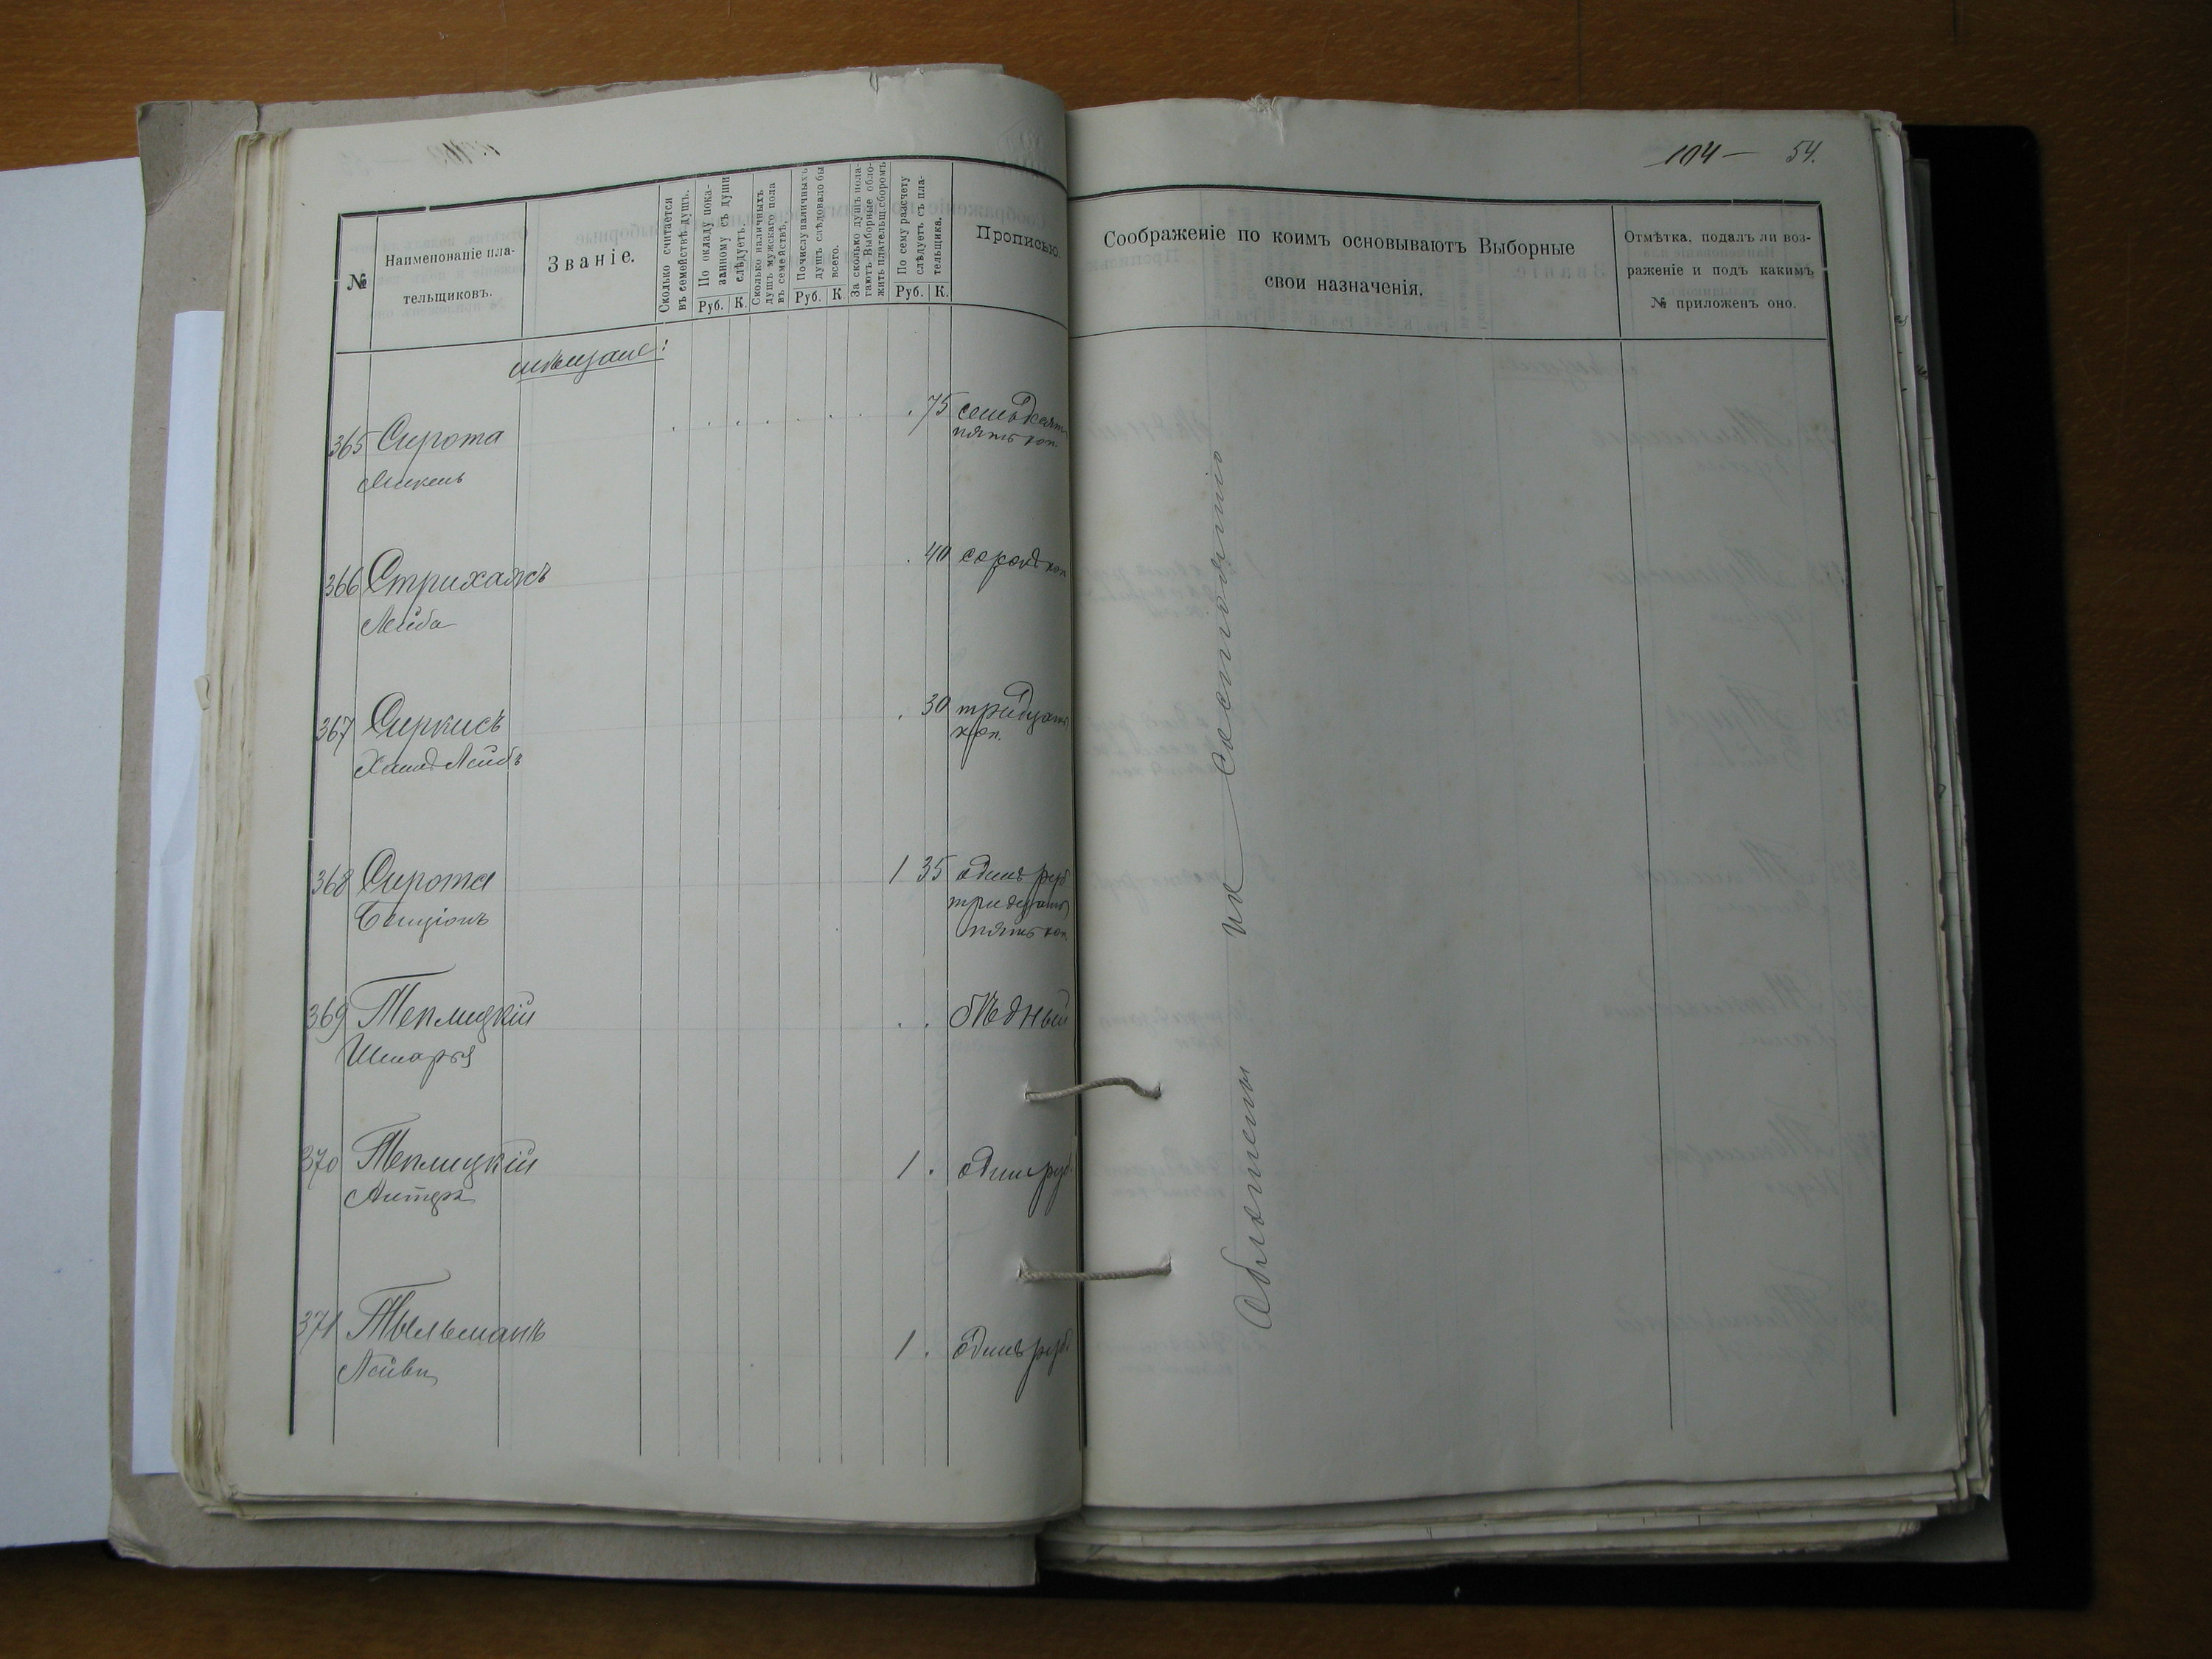 104 — 54.
№
Наименованіе пла-
тельщиковъ.
Званіе.
Сколько считается
въ семействѣ душъ.
По окладу пока-
занному съ души
слѣдуетъ.
Руб. К.
Сколько наличныхъ
душъ мужскаго пола
въ семействѣ.
По числу наличныхъ
душъ слѣдовало бы
всего.
Руб. К.
За сколько душъ пола-
гаютъ Выборные обло-
жить плательщ. сборомъ
По сему разсчету
слѣдуетъ съ пла-
тельщика.
Руб. К.
Прописью.
Соображеніе по коимъ основываютъ Выборные
свои назначенія.
Отмѣтка, подалъ ли воз-
раженіе и подъ какимъ
№ приложенъ оно.
мѣщане:
365 Сирота . 75 семьдесятъ
пять коп.
366 Стрихажъ . 40 сорокъ коп
Лейба
367 Сиркисъ . 30 тридцать
коп.
Хаимъ Лейбъ
368 Сирота 1 35 одинъ руб
тридцать
Бенціонъ
пять коп.
369 Теплицкій . . бѣдный
Шмарья
370 Теплицкій 1 . одинъ руб.
371 Тыльманъ 1 . одинъ руб.
Лейви
по состоянію